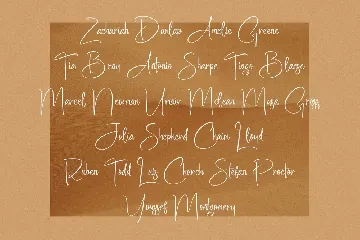 Zachariah Dunlap Amelie Greene
Tia Bray Antonio Sharpe Tiago Blaese
Marcel Newman Umar Mclean Musa Gross
Julia Shepherd Chain Lloyd
Ruben Todd Luis Church Stefan Proctor
Youssef Montgomery